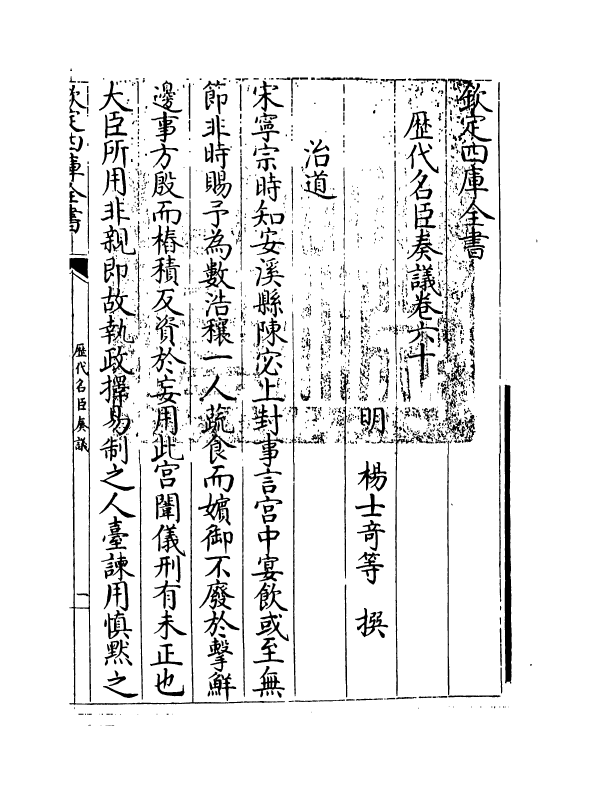 欽定四庫全書
歴代名臣奏議卷六十
明　楊士竒等　撰
治道
宋寧宗時知安溪縣陳宓上封事言宫中宴飲或至無
節非時賜予為數浩穰一人蔬食而嬪御不廢於擊鮮
邊事方殷而樁積反資於妄用此宫闈儀刑有未正也
大臣所用非親即故執政擇易制之人臺諫用慎黙之
欽定四庫全書
歴代名臣奏議